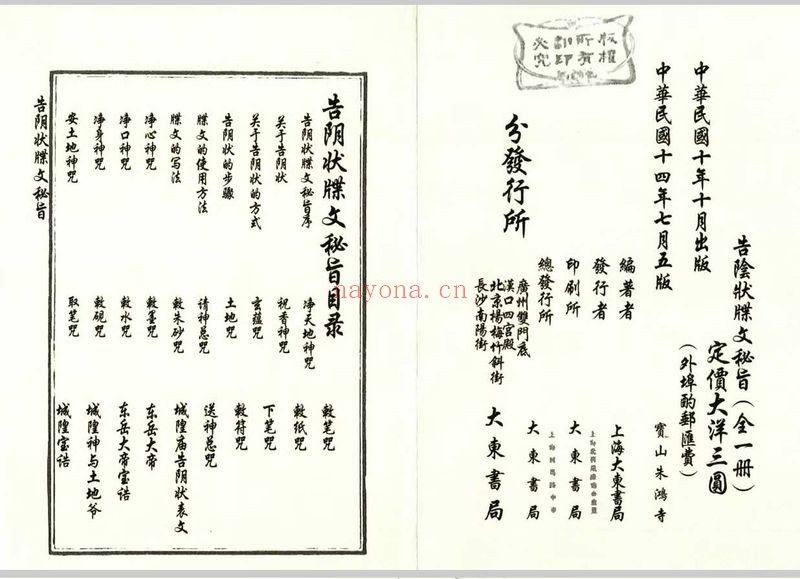 版權
所有
翻印
必究
中華民國十年十月出版
中華民國十四年七月五版
告陰狀牒文秘旨（全一冊）
定價大洋三圓
（外埠酌郵匯費）
編著者 寶山朱鴻寺
發行者 上海大東書局
印刷所 大東書局
總發行所 大東書局
分發行所
廣州雙門底
漢口四宮殿
北京楊梅竹斜街
長沙南陽街
大東書局
nayona.cn
告阴状牒文秘旨目录
告阴状牒文秘旨序
关于告阴状
关于告阴状的方式
告阴状的步骤
牒文的使用方法
牒文的写法
净心神咒
净口神咒
净身神咒
安土地神咒
净天地神咒
祝香神咒
玄蕴咒
土地咒
请神总咒
敕朱砂咒
敕墨咒
敕水咒
敕砚咒
取笔咒
敕笔咒
敕纸咒
下笔咒
敕符咒
送神总咒
城隍庙告阴状表文
东岳大帝
东岳大帝宝诰
城隍神与土地爷
城隍宝诰
告阴状牒文秘旨